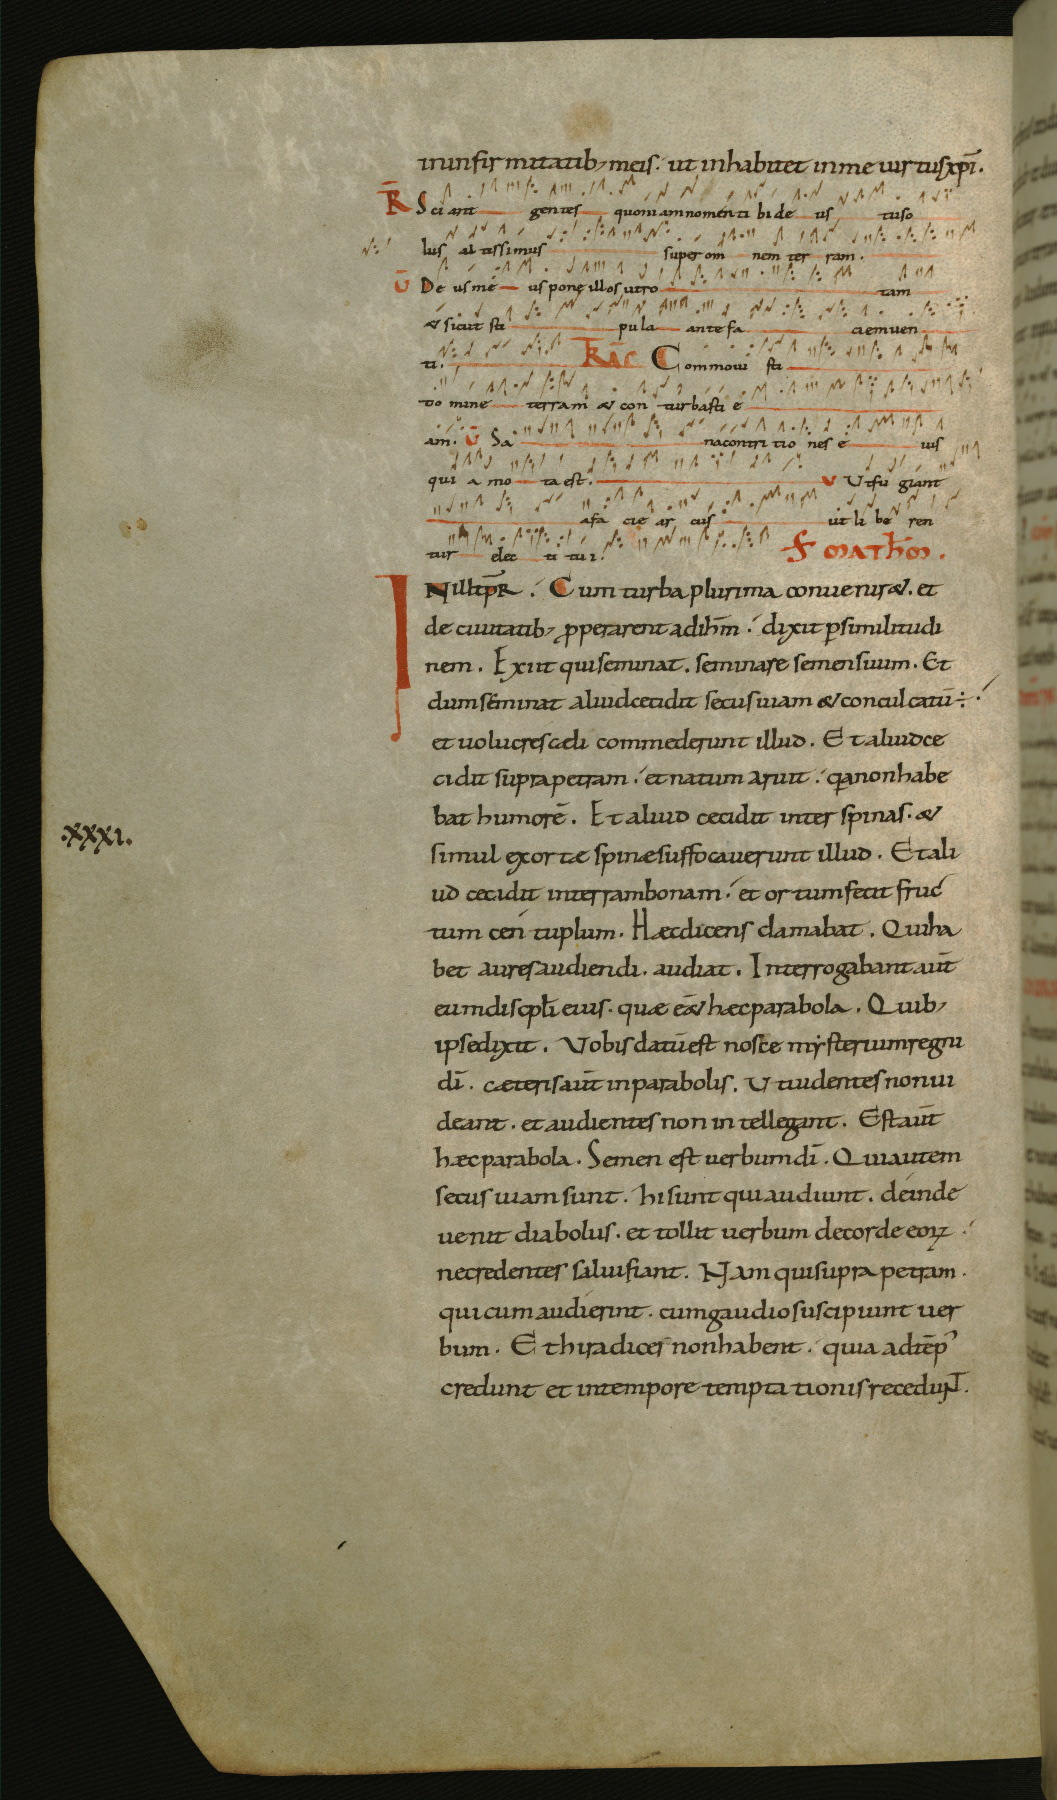 in infirmitatib; meis. ut inhabitet in me uirtus xpi̅.
R̅ Sciant gentes quoniam nomen tibi deus tu so
lus altissimus super omnem terram.
U̅ Deus meus pone illos ut rotam
& sicut stipula ante faciem uen
ti. TRAC Commouisti
domine terram & conturbasti e
am. U̅ Sana contritiones eius
quia mota est. U Ut fugiant
a facie arcus ut liberen
tur electi tui. SC̅ MATH̅M.
IN ILL TP̅R. Cum turba plurima conuenir&. et
de ciuitatib; ꝓperarent ad ih̅m. dixit ꝑ similitudi
nem. Exiit qui seminat. seminare semen suum. Et
dum seminat aliud cecidit secus uiam & conculcatu̅ ÷.
et uolucres cæli commederunt illud. Et aliud ce
cidit supra petram. et natum aruit. qa non habe
bat humore̅. Et aliud cecidit inter spinas. &
simul exortæ spinæ suffocauerunt illud. Et ali
ud cecidit in terram bonam. et ortum fecit fruc
tum centuplum. Hæc dicens clamabat. Qui ha
bet aures audiendi. audiat. Interrogabant aut̅
eum discipl̅i eius. quæ e̅& hæc parabola. Quib;
ipse dixit. Vobis datu̅ est nosce mẏsterium regni
di̅. cæteris aut̅ in parabolis. Ut uidentes non ui
deant. et audientes non intellegant. Est aut̅
hæc parabola. Semen est uerbum di̅. Qui autem
secus uiam sunt. hi sunt qui audiunt. deinde
uenit diabolus. et tollit uerbum de corde eoꝝ.
ne credentes salui fiant. Nam qui supra petram.
qui cum audierint. cum gaudio suscipiunt uer
bum. Et hi radices non habent. quia ad te̅pꝰ
credunt et in tempore temptationis recedunt.
.XXXI.